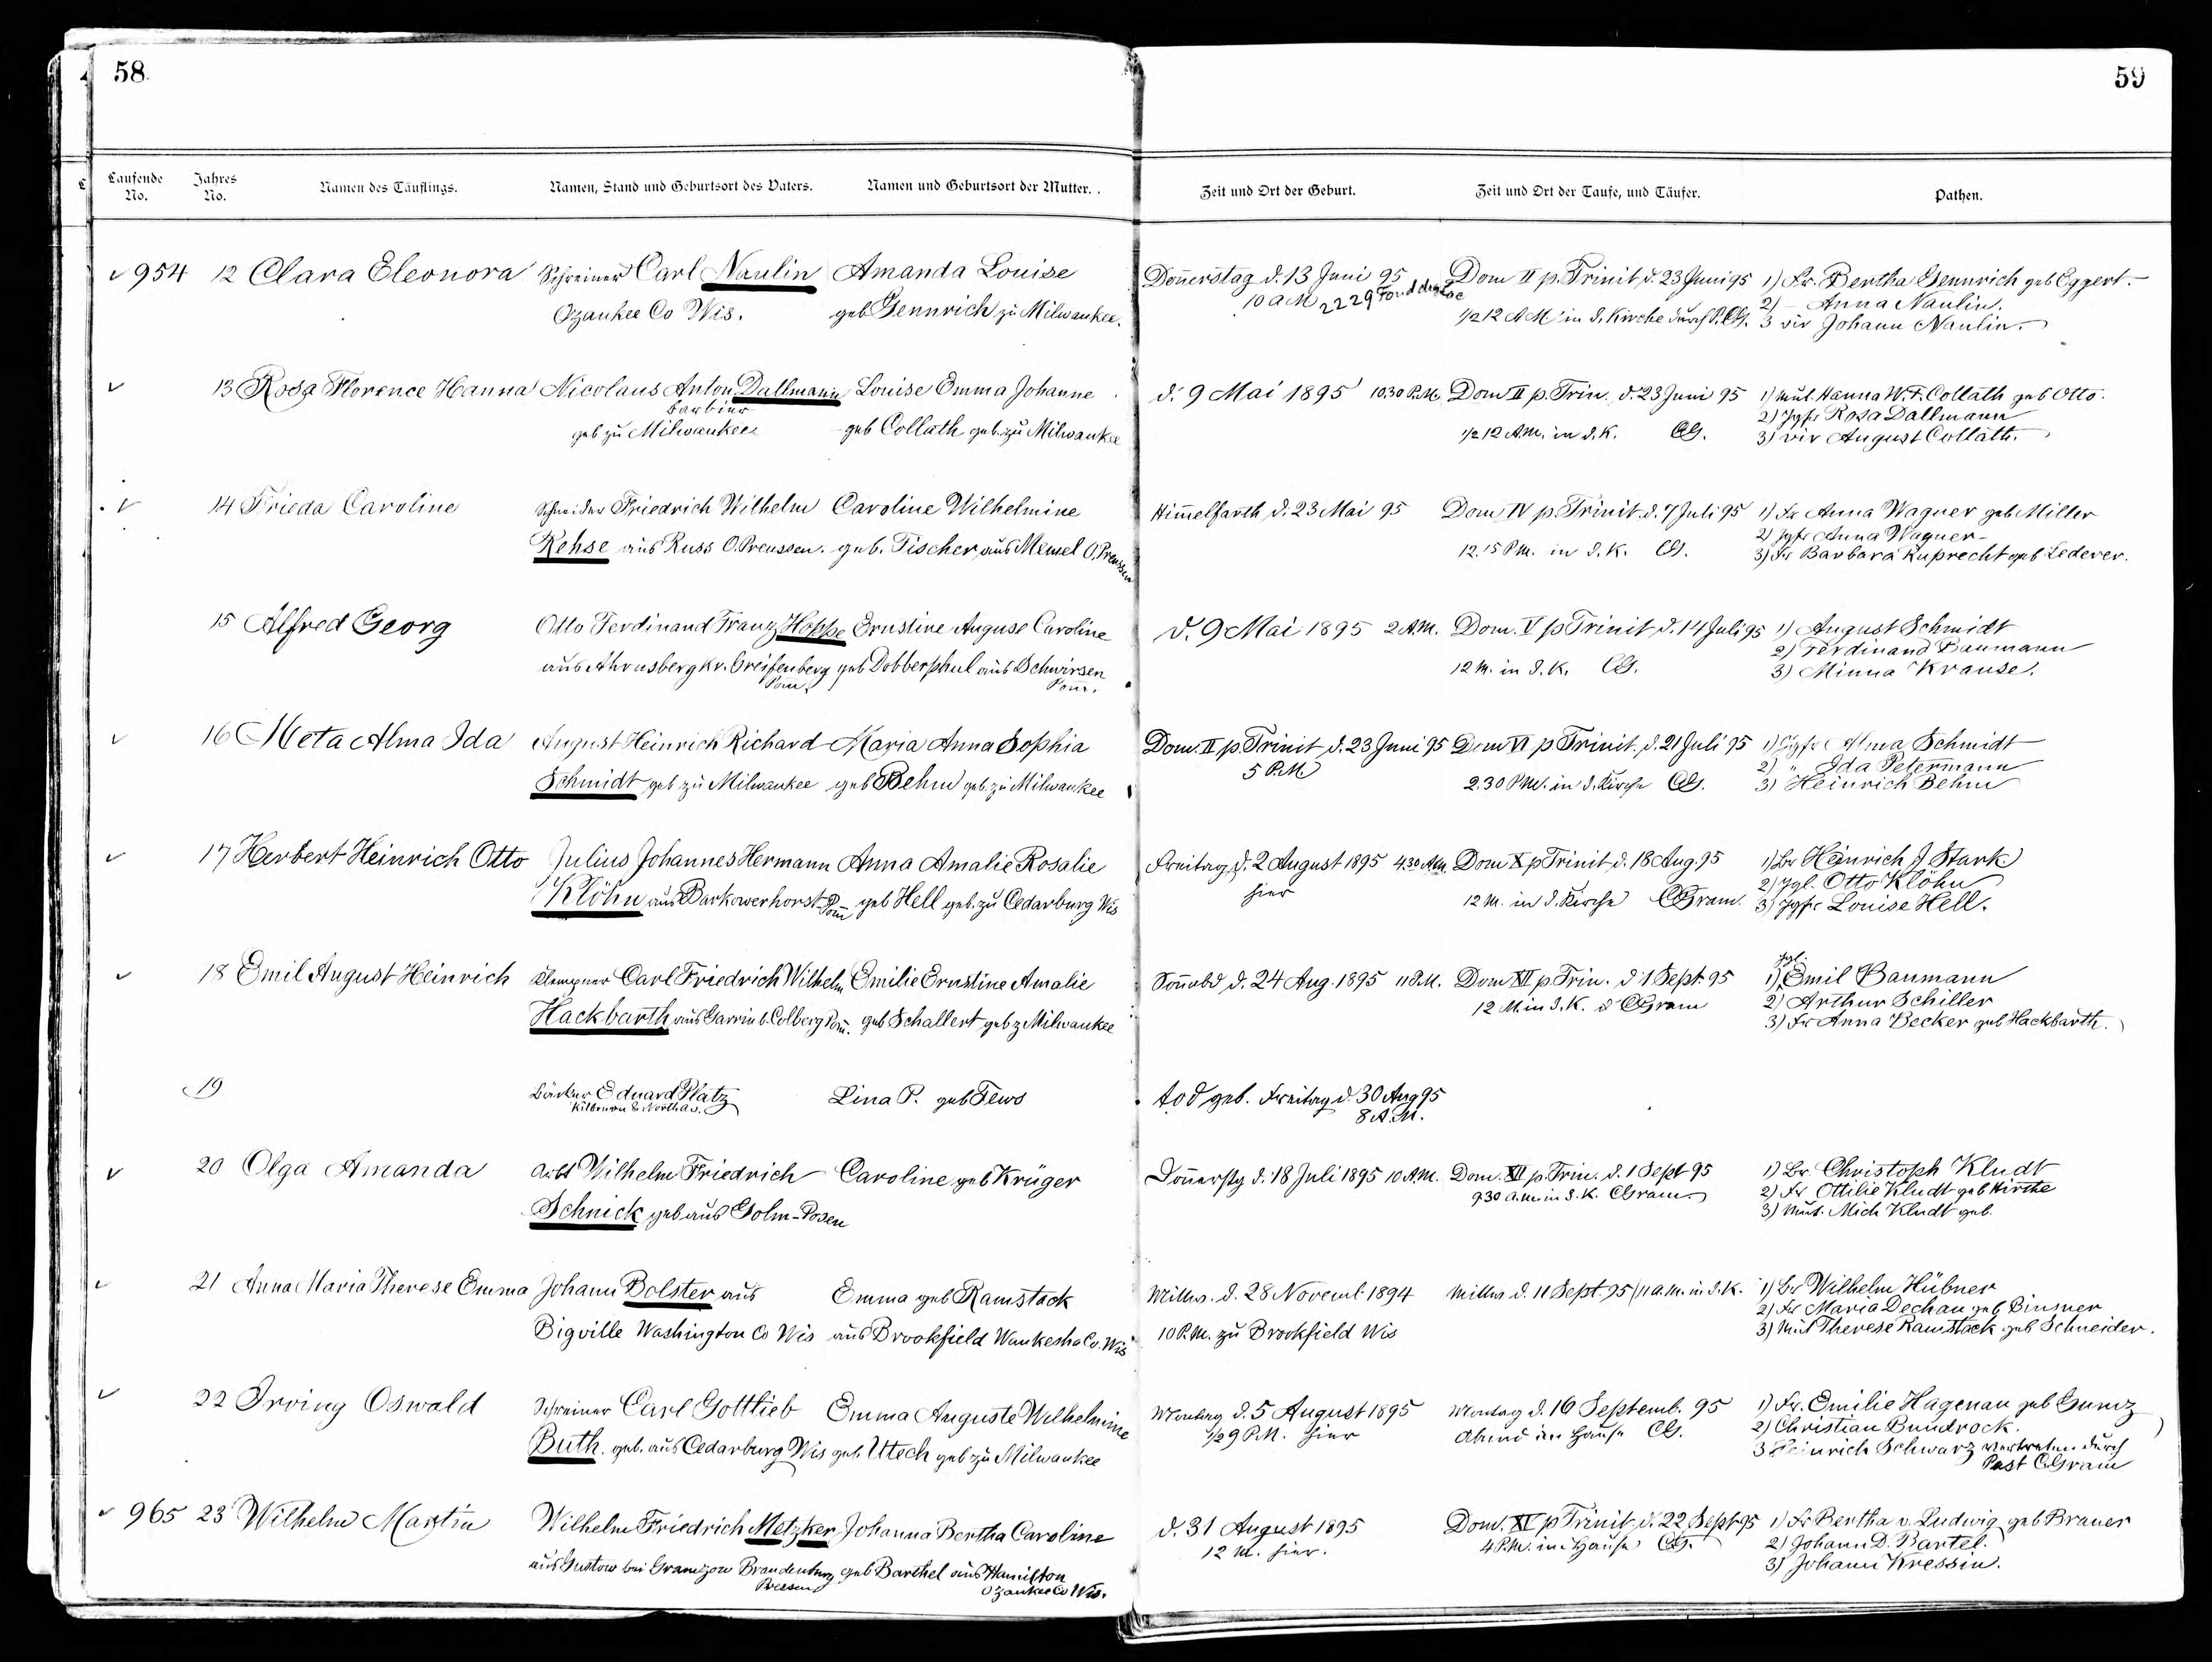 58.
59
Laufende No.
Jahres No.
Namen des Täuflings.
Namen, Stand und Geburtsort des Vaters.
Namen und Geburtsort der Mutter.
Zeit und Ort der Geburt.
Zeit und Ort der Taufe, und Täufer.
Pathen.
954 12 Clara Eleonora Schreiner Carl Naulin Amanda Louise Donnerstag d. 13 Juni 95 Dom II p. Trinit. d. 23 Juni 95 1) Fr. Bertha Gennrich geb Eggert.
Ozaukee Co Wis. geb Gennrich zu Milwaukee. 10 AM 2229 Fond du Lac 1/2 12 AM in d. Kirche durch P. CG. 2) Anna Naulin.
3 vir Johann Naulin.
13 Rosa Florence Hanna Nicolaus Anton Dallmann Louise Emma Johanne d. 9 Mai 1895 10.30 P.M. Dom II p. Trin. d. 23 Juni 95 1) Mut. Hanna W. F. Collath geb Otto.
Barbier 2) Jgfr Rosa Dallmann
geb zu Milwaukee geb Collath geb. zu Milwaukee 1/2 12 A.M. in d. K. CG. 3) vir August Collath.
14 Frieda Caroline Schneider Friedrich Wilhelm Caroline Wilhelmine Himmelfarth d. 23 Mai 95 Dom IV p. Trinit. d. 7 Juli 95 1) Fr Anna Wagner geb Miller
2) Jgfr Anna Wagner
Rehse aus Russ O. Preussen. geb. Fischer aus Memel O. Preussen 12.15 P.M. in d. K. CG. 3) Fr Barbara Ruprecht geb Lederer.
15 Alfred Georg Otto Ferdinand Franz Hoppe Ernstine Auguse Caroline d. 9 Mai 1895 2 A.M. Dom. V p Trinit d. 14 Juli 95 1) August Schmidt
2) Ferdinand Baumann
aus Ahrnsberg Kr. Greifenberg Pom. geb Dobberphul aus Schwirsen Pom. 12 M. in d. K. CG. 3) Minna Krause.
16 Meta Alma Ida August Heinrich Richard Maria Anna Sophia Dom. II p Trinit d. 23 Juni 95 Dom VI p Trinit, d. 21 Juli 95 1) Jgfr Alma Schmidt
2) " Ida Petermann
Schmidt geb zu Milwaukee geb Behm geb. zu Milwaukee 5 P.M. 2.30 P.M. in d. Kirche CG. 3) Heinrich Behm
17 Herbert Heinrich Otto Julius Johannes Hermann Anna Amalie Rosalie Freitag d. 2 August 1895 4.30 A.M. Dom X p Trinit d. 18 Aug. 95 1) Hr Heinrich J. Stark
2) Jgl. Otto Klöhn
Klöhn aus Barkowerhorst Pom geb Hell geb. zu Cedarburg Wis hier 12 M. in d. Kirche CGram. 3) Jgfr Louise Hell.
18 Emil August Heinrich Klempner Carl Friedrich Wilhelm Emilie Ernstine Amalie Sonnabd d. 24 Aug. 1895 11 P.M. Dom XII p. Trin. d 1 Sept. 95 Jgl. 1) Emil Baumann
2) Arthur Schiller
Hackbarth aus Garrin b. Colberg Pom. geb Schallert geb z Milwaukee 12 M. in d. K. d CGram 3) Fr Anna Becker geb Hackbarth.
19 Bäcker Eduard Platz Lina P. geb Tews tod geb. Freitag d. 30 Aug 95
Kilbourn & North av. 8 A.M.
20 Olga Amanda Arbt Wilhelm Friedrich Caroline geb Krüger Donnerstg d. 18 Juli 1895 10 A.M. Dom. XII p. Trin. d. 1 Sept 95 1) Hr Christoph Kludt
9.30 a.m. in d. K. CGram 2) Fr Ottilie Kludt geb Hirthe
Schnick geb aus Golm-Posen 3) Mut. Mich Kludt geb.
21 Anna Maria Therese Emma Johann Bolster aus Emma geb Ramstack Mittw. d. 28 Novemb. 1894 Mittw d. 11 Sept. 95 11 a.m. in d. K. 1) Hr Wilhelm Hübner
2) Fr Maria Dechau geb Binsner
Bigville Washington Co Wis aus Brookfield Waukesha Co. Wis 10 P.M. zu Brookfield Wis 3) Mut Therese Ramstack geb Schneider.
22 Irving Oswald Schreiner Carl Gottlieb Emma Auguste Wilhelmine Montag d. 5 August 1895 Montag d. 16 Septemb. 95 1) Fr. Emilie Hagenau geb Gumz
1/2 9 P.M. hier Abend im Hause CG. 2) Christian Bundrock.
Buth. geb. aus Cedarburg Wis geb. Utech geb zu Milwaukee 3 Heinrich Schwarz vertreten durch
Past CGram
965 23 Wilhelm Martin Wilhelm Friedrich Metzker Johanna Bertha Caroline d. 31 August 1895 Dom. XV p Trinit. d. 22 Sept 95 1) Fr Bertha v. Ludwig geb Brauer
12 M. hier. 4 P.M. im Hause CG. 2) Johann D. Bartel.
aus Gustow bei Gramzow Brandenburg geb Barthel aus Hamilton 3) Johann Kressin.
Preussen Ozaukee Co Wis.